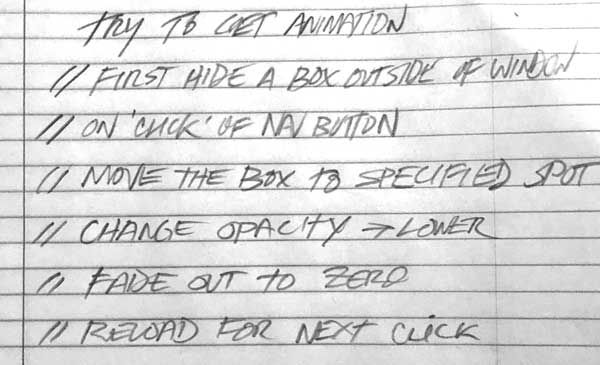 TRY TO GET ANIMATION
// FIRST HIDE A BOX OUTSIDE OF WINDOW
// ON 'CLICK' OF NAV BUTTON
// MOVE THE BOX TO SPECIFIED SPOT
// CHANGE OPACITY → LOWER
// FADE OUT TO ZERO
// RELOAD FOR NEXT CLICK